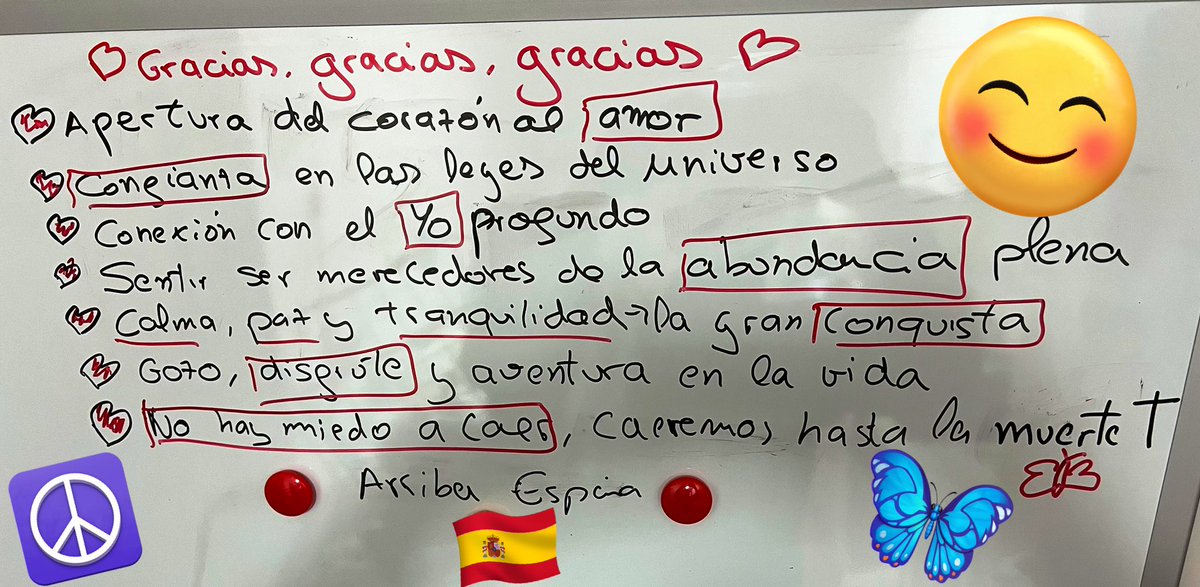 Gracias, gracias, gracias
Apertura del corazón al amor
Confianza en las leyes del universo
Conexión con el Yo profundo
Sentir ser merecedores de la abundancia plena
Calma, paz y tranquilidad → la gran conquista
Gozo, disfrute y aventura en la vida
No hay miedo a caer, caeremos hasta la muerte †
Arriba España